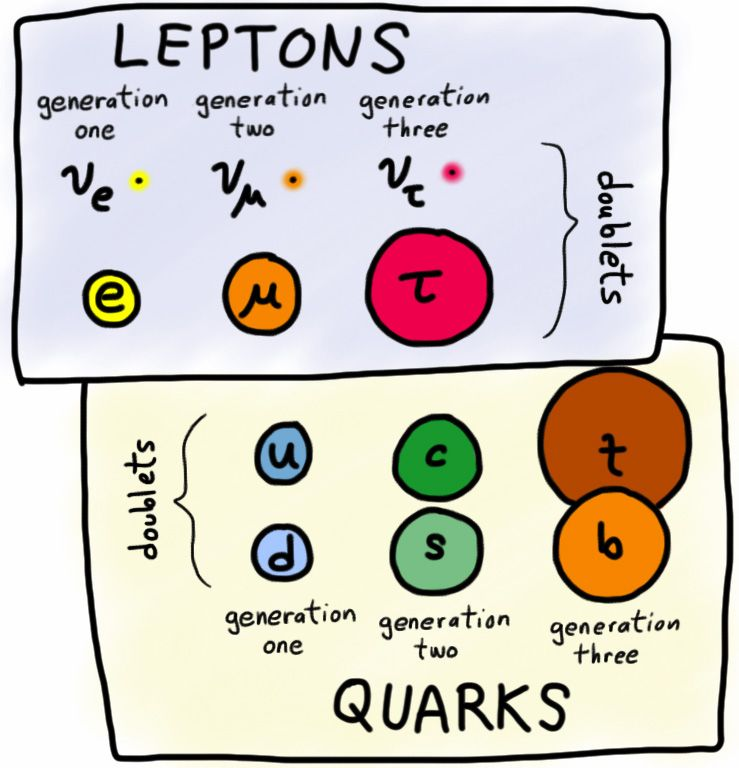 LEPTONS
generation one
generation two
generation three
νe
νμ
ντ
e
μ
τ
doublets
doublets
u
c
t
d
s
b
generation one
generation two
generation three
QUARKS